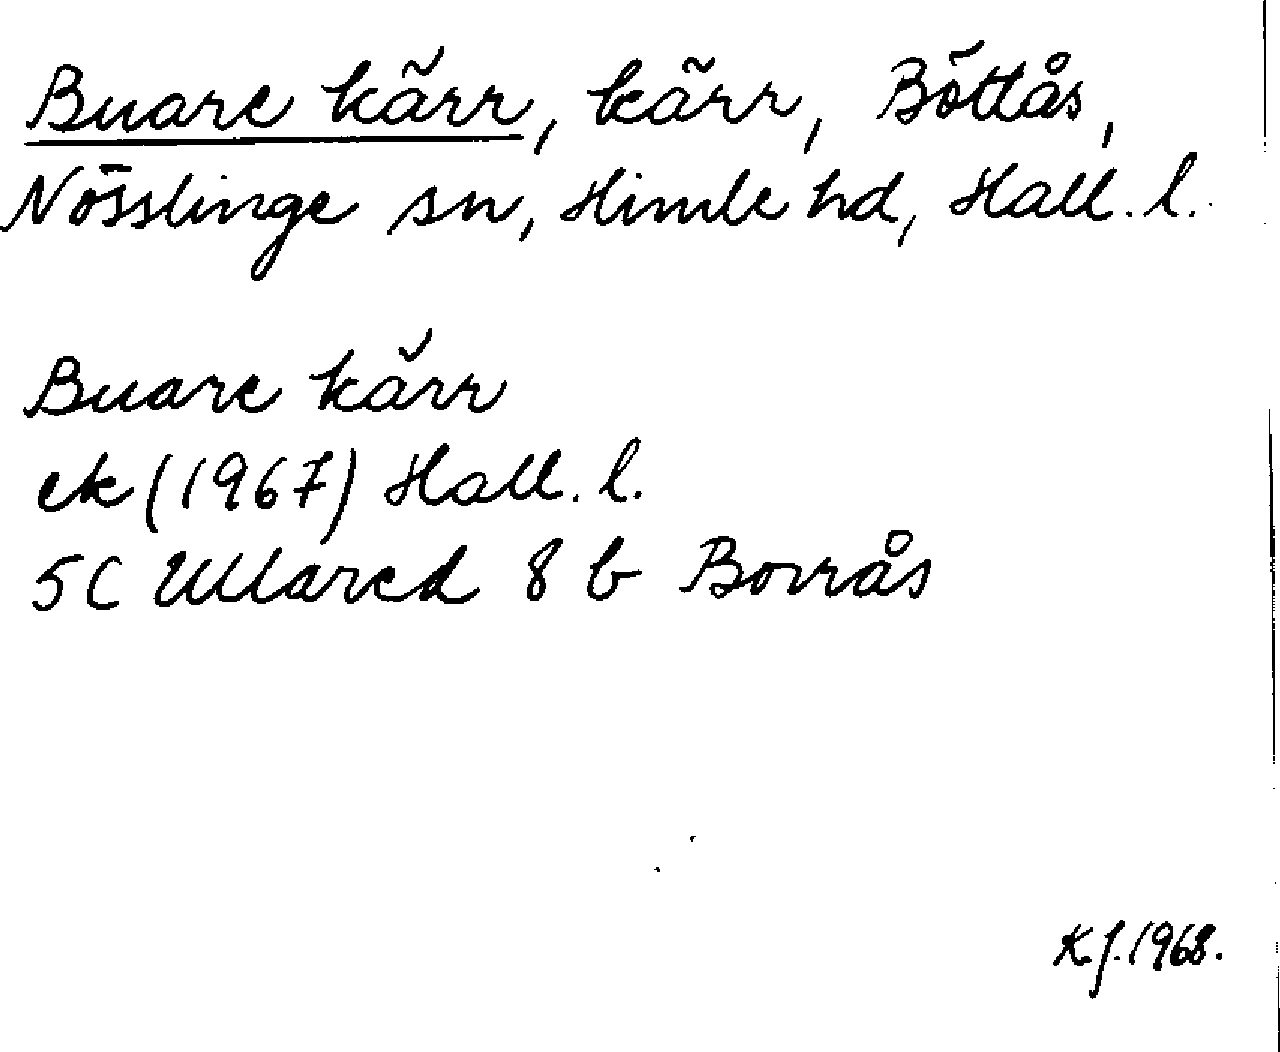 Buare kärr, kärr, Böttås,
Nösslinge sn, Himle hd, Hall. l.
Buare kärr
ek (1967) Hall. l.
5C Ullared 8 b Borrås
K.J. 1968.